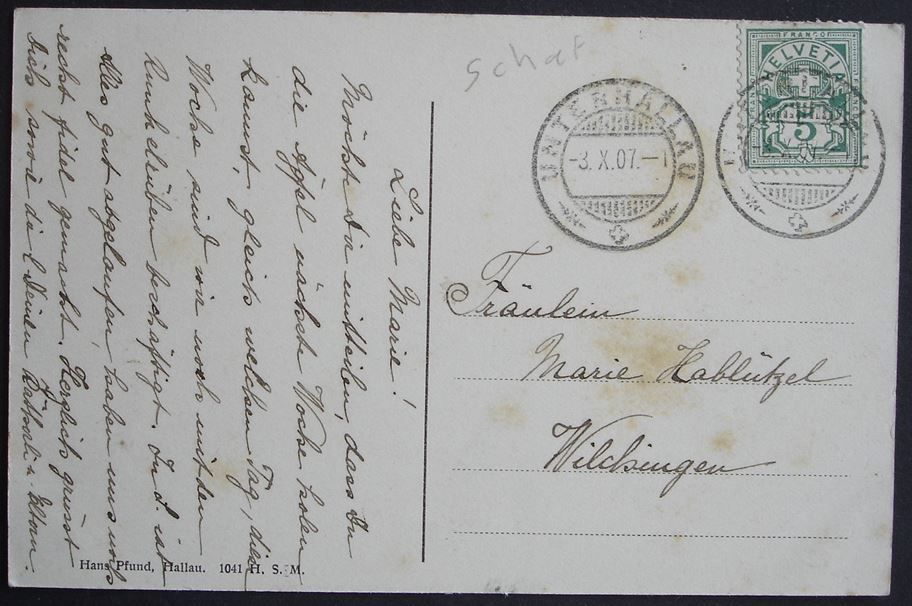 Schaf
UNTERHALLAU
-3.X.07.-1
FRANCO
HELVETIA
5
Fräulein
Marie Hablützel
Wilchingen
Liebe Marie!
Möchte Dir mitteilen, dass Du
die Äpfel nächste Woche holen
kannst, gleich welchen Tag, diese
Woche sind wir noch mit den
Runkelrüben beschäftigt. Ist
alles gut abgelaufen, haben uns noch
recht fidel gemacht. Herzlich grüsst
Dich sowie die l. Deinen u. Eltern.
Hans Pfund, Hallau. 1041 H. S. M.